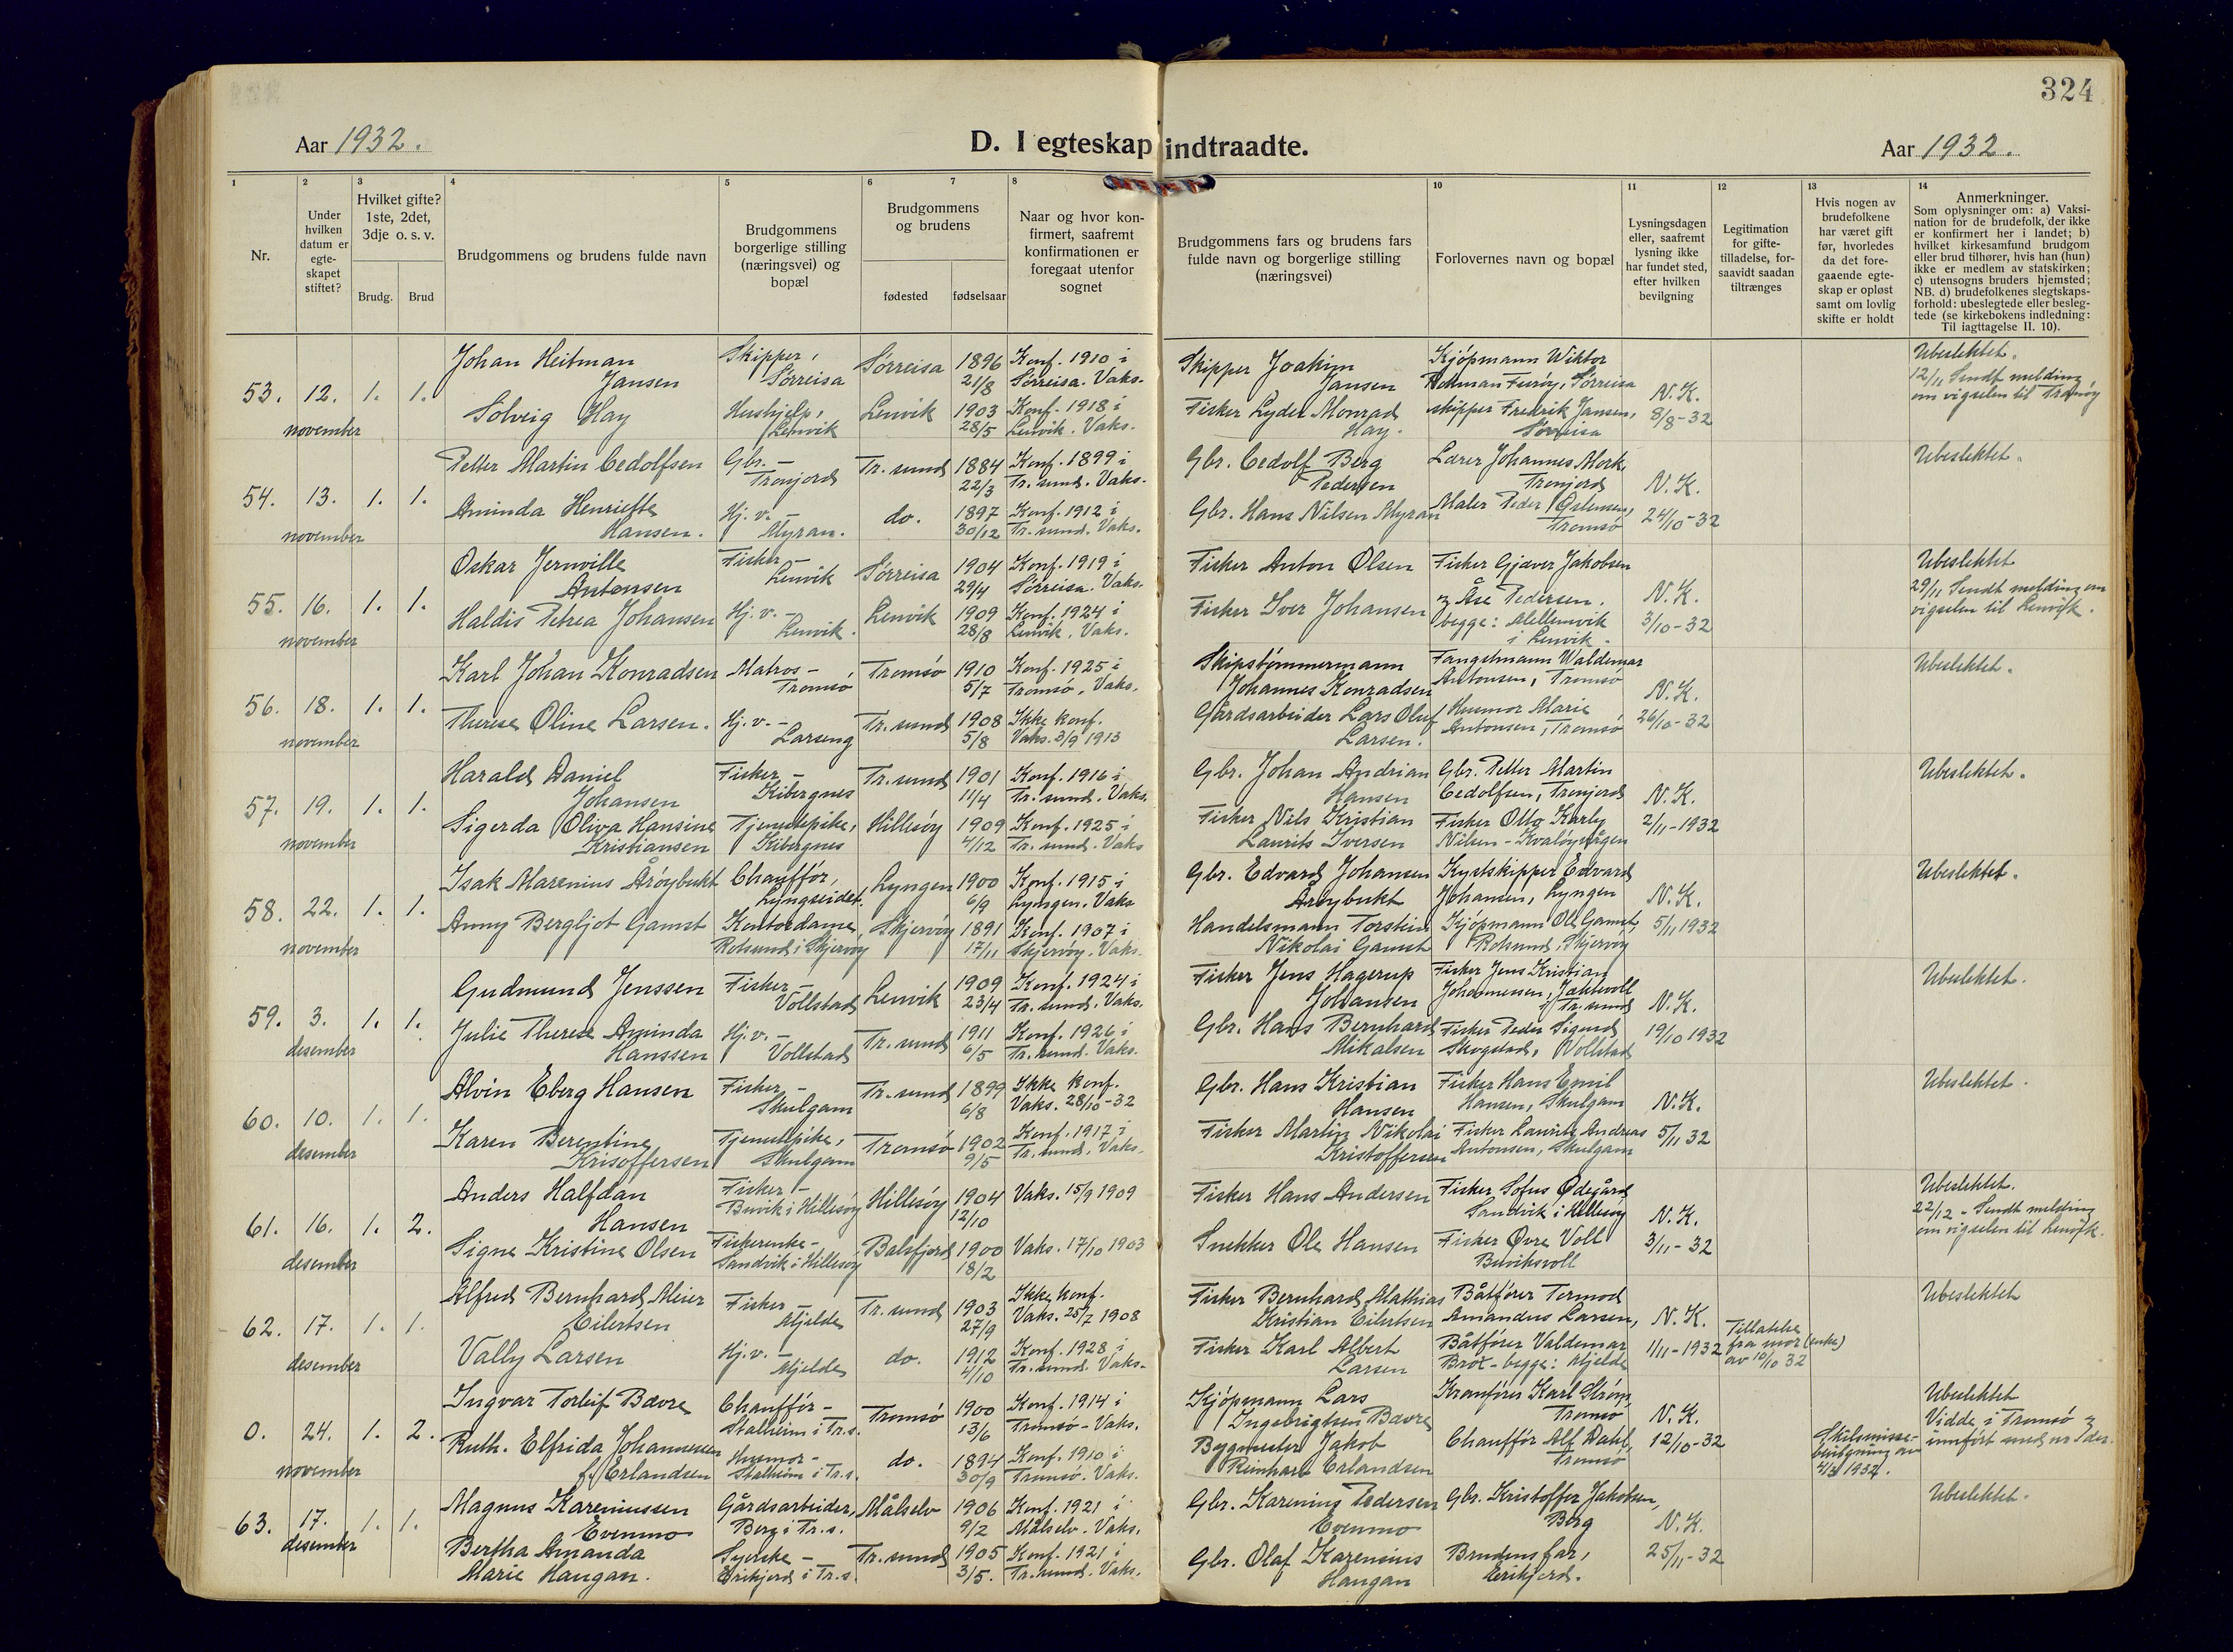 324
Aar 1932.
D. I egteskap indtraadte.
Aar 1932.
1
2
3
4
5
6
7
8
10
11
12
13
14
Nr.
Under hvilken datum er egte-skapet stiftet?
Hvilket gifte? 1ste, 2det, 3dje o. s. v.
Brudg.
Brud
Brudgommens og brudens fulde navn
Brudgommens borgerlige stilling (næringsvei) og bopæl
Brudgommens og brudens
fødested
fødselsaar
Naar og hvor kon-firmert, saafremt konfirmationen er foregaat utenfor sognet
Brudgommens fars og brudens fars fulde navn og borgerlige stilling (næringsvei)
Forlovernes navn og bopæl
Lysningsdagen eller, saafremt lysning ikke har fundet sted, efter hvilken bevilgning
Legitimation for gifte-tilladelse, for-saavidt saadan tiltrænges
Hvis nogen av brudefolkene har været gift før, hvorledes da det fore-gaaende egte-skap er opløst samt om lovlig skifte er holdt
Anmerkninger.
Som oplysninger om: a) Vaksi-nation for de brudefolk, der ikke er konfirmert her i landet; b) hvilket kirkesamfund brudgom eller brud tilhører, hvis han (hun) ikke er medlem av statskirken; c) utensogns bruders hjemsted; NB. d) brudefolkenes slegtskaps-forhold: ubeslegtede eller besleg-tede (se kirkebokens indledning: Til iagttagelse II. 10).
53. 12. november 1. 1.
Johan Heitman Jansen
Skipper, Sørreisa
Sørreisa 1896 21/8
Konf. 1910 i Sørreisa. Vaks.
Skipper Joakim Jansen
Kjøpmann Wiktor Rekman Furøy, Sørreisa
N.K. 8/8-32
Ubeslektet.
12/11 Sendt melding om vigselen til Tranøy
Solveig Hay
Hushjelp, Lenvik
Lenvik 1903 28/5
Konf. 1918 i Lenvik. Vaks.
Fisker Lyder Monrad Hay.
skipper Fredrik Jansen, Sørreisa
54. 13. november 1. 1.
Petter Martin Cedolfsen
Gbr. - Tronjord
Tr. sund 1884 22/3
Konf. 1899 i Tr. sund. Vaks.
Gbr. Cedolf Berg Pedersen
Lærer Johannes Mork Tronjord
N.K. 24/10-32
Ubeslektet.
Aminda Henriette Hansen.
Hj. v. - Myran.
do. 1897 30/12
Konf. 1912 i Tr. sund. Vaks.
Gbr. Hans Nilsen Myran
Maler Peder Tromsø
55. 16. november 1. 1.
Oskar Jernville Antonsen
Fisker - Lenvik
Sørreisa 1904 29/4
Konf. 1919 i Sørreisa. Vaks.
Fisker Anton Olsen
Fisker Gjæver Jakobsen
N.K. 3/10-32
Ubeslektet
29/11 Sendt melding om vigselen til Lenvik.
Haldis Petrea Johansen
Hj. v. - Lenvik.
Lenvik 1909 28/8
Konf. 1924 i Lenvik. Vaks.
Fisker Iver Johansen
og Åse Pedersen. begge: Mellemvik i Lenvik.
56. 18. november 1. 1.
Karl Johan Konradsen
Matros - Tromsø
Tromsø 1910 5/7
Konf. 1925 i Tromsø. Vaks.
Skipstømmermann Johannes Konradsen
Fangstmann Waldemar Antonsen, Tromsø
N.K. 26/10-32
Ubeslektet.
Therese Oline Larsen.
Hj. v. - Larseng
Tr. sund 1908 5/8
Ikke konf. Vaks. 3/9 1913
Gårdsarbeider Lars Oluf Larsen.
Husmor Marie Antonsen, Tromsø
57. 19. november 1. 1.
Harald Daniel Johansen
Fisker - Kibergnes
Tr. sund 1901 11/4
Konf. 1916 i Tr. sund. Vaks.
Gbr. Johan Andrian Hansen
Gbr. Petter Martin Cedolfsen, Tronjord
N.K. 2/11-1932
Ubeslektet.
Sigerda Oliva Hansine Kristiansen
Tjenestepike, Kibergnes
Hillesøy 1909 4/12
Konf. 1925 i Tr. sund. Vaks
Fisker Nils Kristian Laurits Iversen
Fisker Otto Karly Nilsen - Kvaløyvågen
58. 22. november 1. 1.
Isak Marenius Årøybukt
Chauffør, Lyngseidet.
Lyngen 1900 6/9
Konf. 1915 i Lyngen. Vaks
Gbr. Edvard Johansen Årøybukt
Kystskipper Edvard Johansen, Lyngen
N.K. 5/11 1932
Ubeslektet.
Anny Bergljot Gamst
Kontordame, Rotsund i Skjervøy
Skjervøy 1891 17/11
Konf. 1907 i Skjervøy. Vaks.
Handelsmann Torstein Nikolai Gamst
Kjøpmann Ole Gamst, Rotsund, Skjervøy
59. 3. desember 1. 1.
Gudmund Jenssen
Fisker - Vollstad
Lenvik 1909 23/4
Konf. 1924 i Tr. sund. Vaks.
Fisker Jens Hagerup Johansen
Fisker Jens Kristian Johannessen, Jektevoll i Tr. sund
N.K. 19/10 1932
Ubeslektet.
Julie Therese Aminda Hanssen
Hj. v. - Vollstad
Tr. sund 1911 6/5
Konf. 1926 i Tr. sund. Vaks.
Gbr. Hans Bernhard Mikalsen
Fisker Peder Sigurd Skogstad, Vollstad
60. 10. desember 1. 1.
Alvin Eberg Hansen
Fisker - Skulgam
Tr. sund 1899 6/8
Ikke konf. Vaks. 28/10-32
Gbr. Hans Kristian Hansen
Fisker Hans Emil Hansen, Skulgam
N.K. 5/11 32
Ubeslektet.
Karen Berentine Krisoffersen
Tjenestepike, Skulgam
Tromsø 1902 9/5
Konf. 1917 i Tr. sund. Vaks.
Fisker Martin Nikolai Kristoffersen
Fisker Lauritz Andreas Antonsen, Skulgam
61. 16. desember 1. 2.
Anders Halfdan Hansen
Fisker - Buvik i Hillesøy
Hillesøy 1904 12/10
Vaks. 15/9 1909
Fisker Hans Andersen
Fisker Sofus Ødegård, Sandvik i Hillesøy
N.K. 3/11-32
Ubeslektet.
22/12 - Sendt melding om vigselen til Lenvik.
Signe Kristine Olsen
Fiskerenke - Sandvik i Hillesøy
Balsfjord 1900 18/2
Vaks. 17/10 1903
Snekker Ole Hansen
Fisker Øvre Voll Buviksvoll
62. 17. desember 1. 1.
Alfred Bernhard Meier Eilertsen
Fisker - Mjelde
Tr. sund 1903 27/9
Ikke konf. Vaks. 25/7 1908
Fisker Bernhard Mathias Kristian Eilertsen
Båtfører Tormod Amandus Larsen,
N.K. 1/11-1932
Tillatelse fra mor (enke) av 10/10 32
Ubeslektet
Vally Larsen
Hj. v. - Mjelde
do. 1912 4/10
Konf. 1928 i Tr. sund. Vaks.
Fisker Karl Albert Larsen
Båtfører Valdemar Brox - begge: Mjelde
0. 24. november 1. 2.
Ingvar Torleif Bævre
Chauffør - Stalheim i Tr.s.
Tromsø 1900 13/6
Konf. 1914 i Tromsø - Vaks.
Kjøpmann Lars Ingebrigtsen Bævre
Kranfører Karl Strøm, Tromsø
N.K. 12/10-32
Skilsmisse-bevilgning av 4/3 1932.
Ubeslektet
Vidde i Tromsø og innført med nr der.
Ruth. Elfrida Johannessen f. Erlandsen
Husmor - Stalheim i Tr.s.
do. 1894 30/9
Konf. 1910 i Tromsø. Vaks.
Bygmester Jakob Reinhart Erlandsen
Chauffør Alf Dahl, Tromsø
63. 17. desember 1. 1.
Magnus Kareniussen Evenmo
Gårdsarbeider, Berg i Tr.s.
Målselv 1906 9/2
Konf. 1921 i Målselv. Vaks.
Gbr. Karenius Pedersen Evenmo
Gbr. Kristoffer Jakobsen, Berg
N.K. 25/11-32
Ubeslektet.
Bertha Amanda Marie Haugan.
Syerske - Eirikjord i Tr.s.
Tr. sund 1905 3/5.
Konf. 1921 i Tr. sund. Vaks.
Gbr. Olaf Karensius Haugan
Brudens far, Eirikjord.